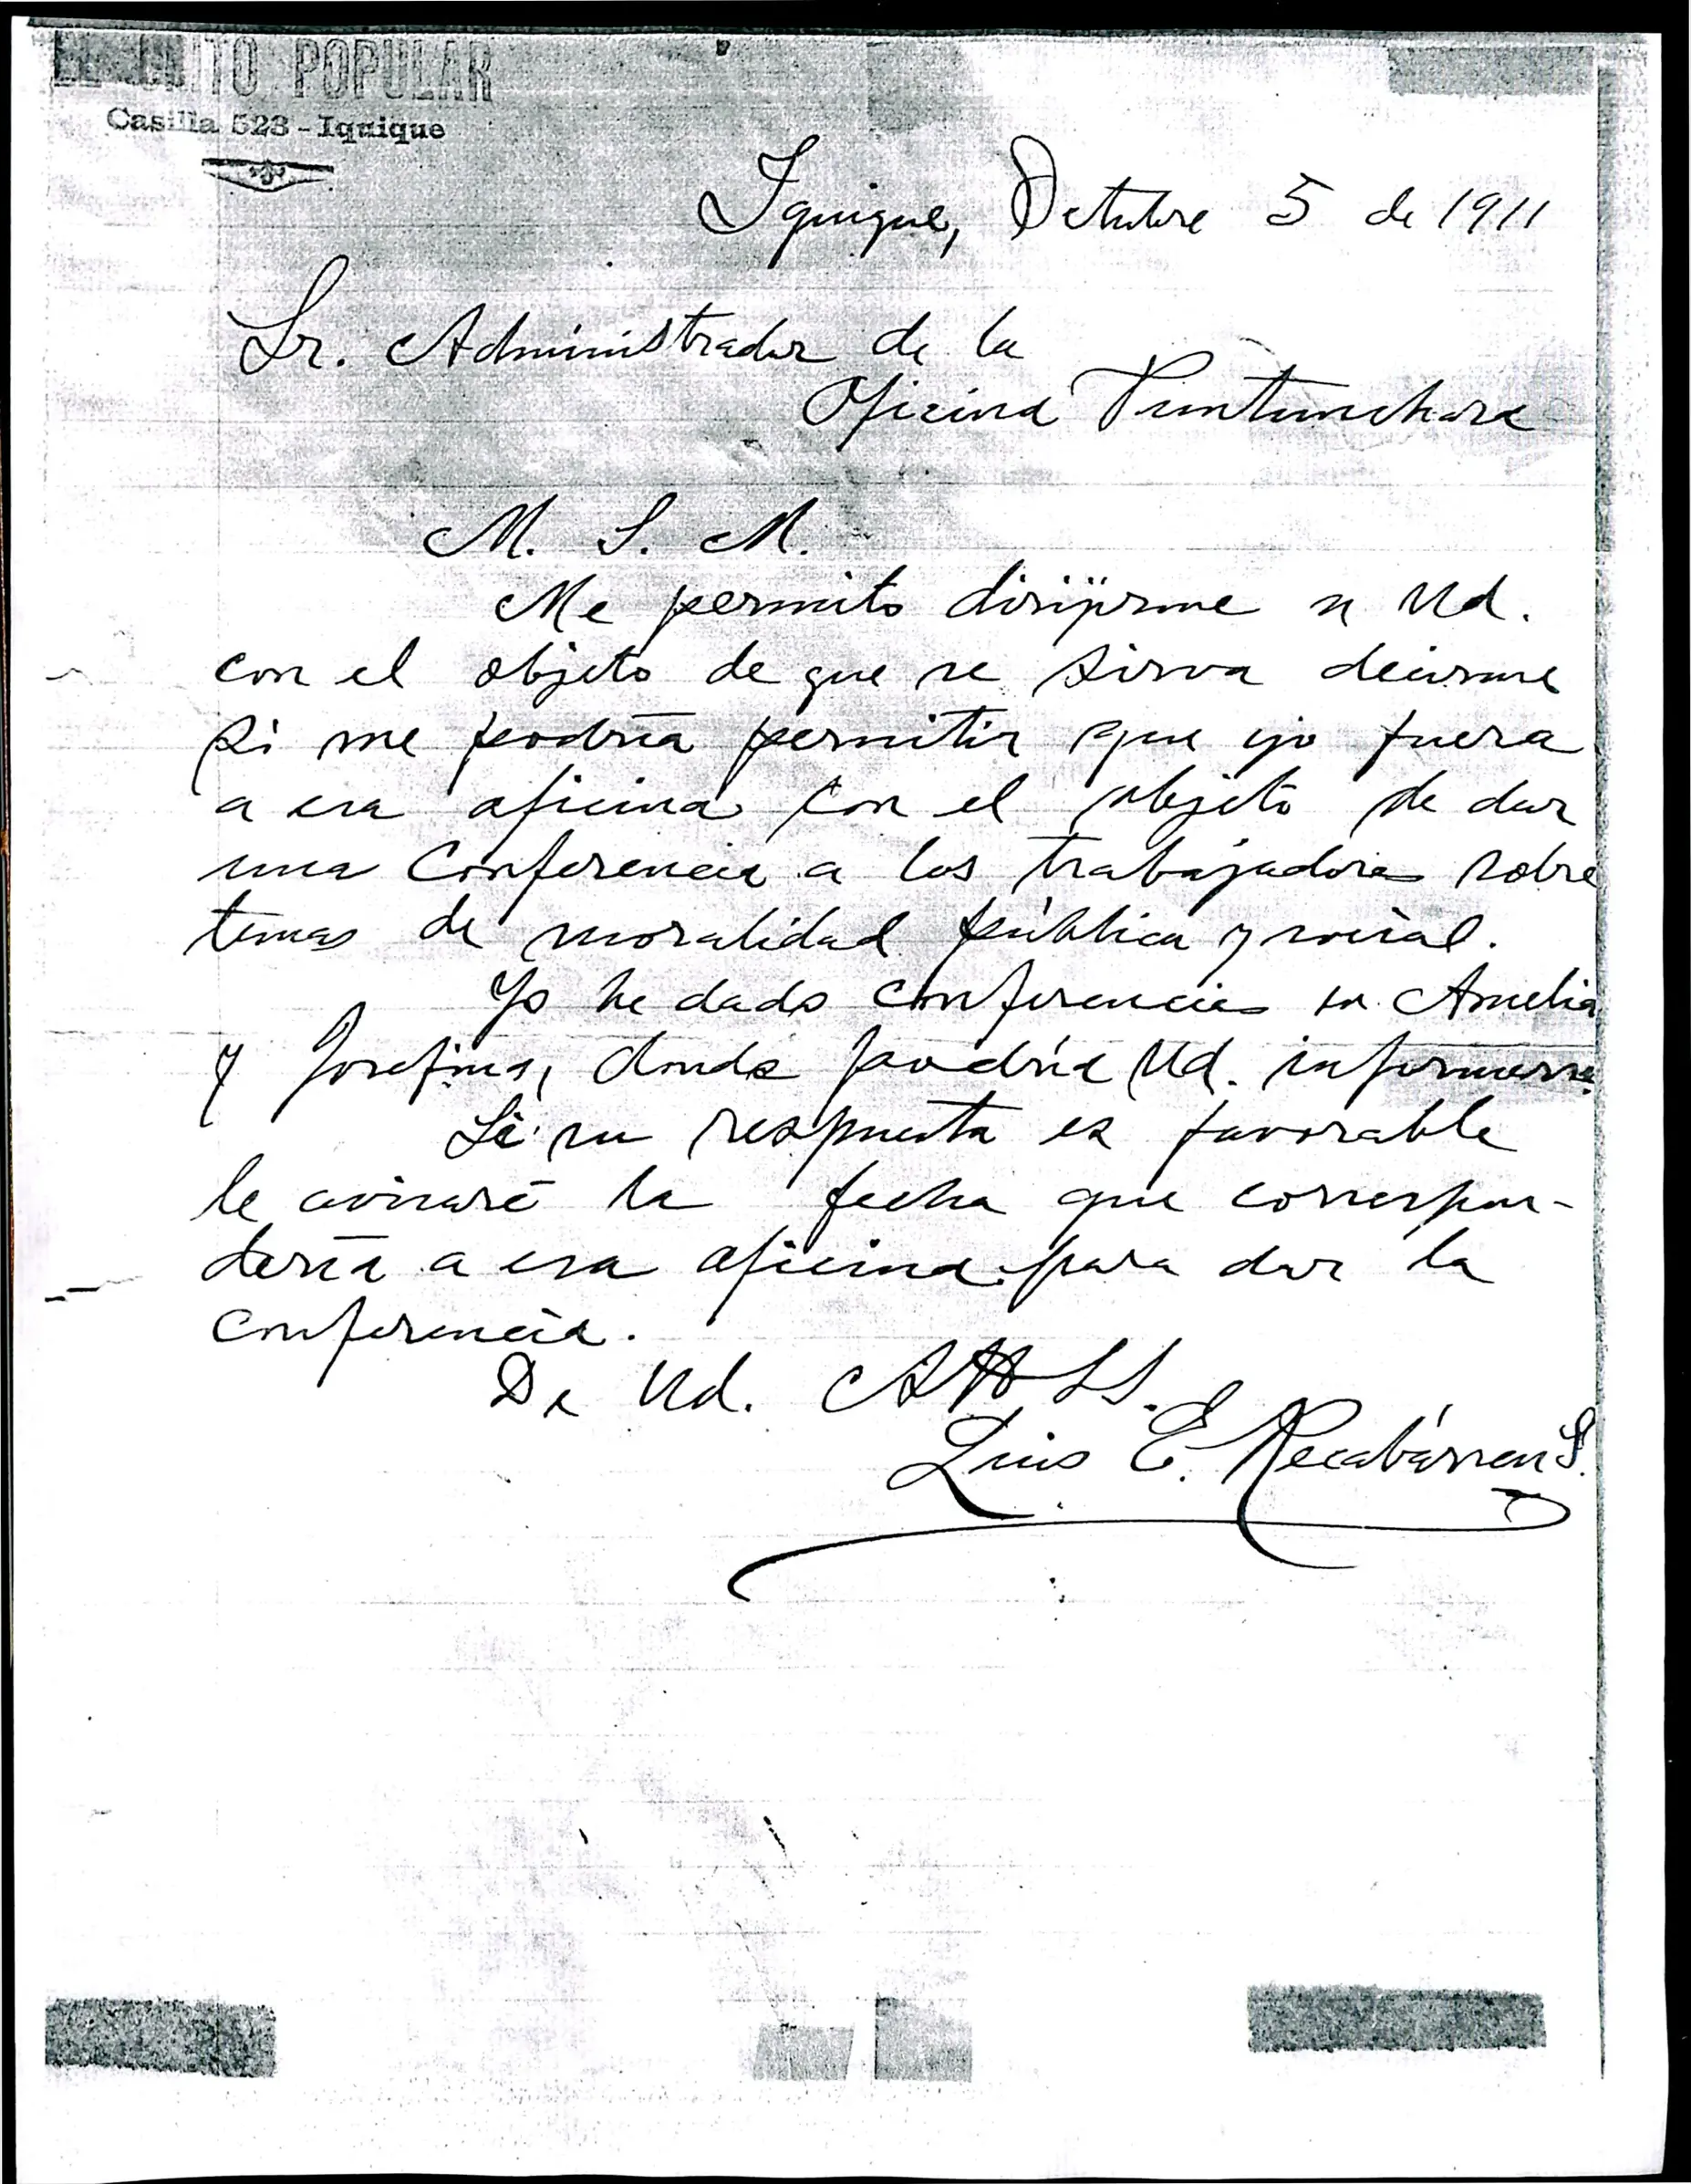 EL GRITO POPULAR
Casilla 523 - Iquique
Iquique, Octubre 5 de 1911
Sr. Administrador de la
Oficina Puntunchara
M. S. M.
Me permito dirijirme a Ud.
con el objeto de que se sirva decirme
si me podría permitir que yo fuera
a esa oficina con el objeto de dar
una conferencia a los trabajadores sobre
temas de moralidad pública y social.
Yo he dado conferencias en Amelia
y Josefina, donde podría Ud. informarse.
Si su respuesta es favorable
le avisaré la fecha que correspon-
dería a esa oficina para dar la
conferencia.
De Ud. Atto SS.
Luis E. Recabárren S.